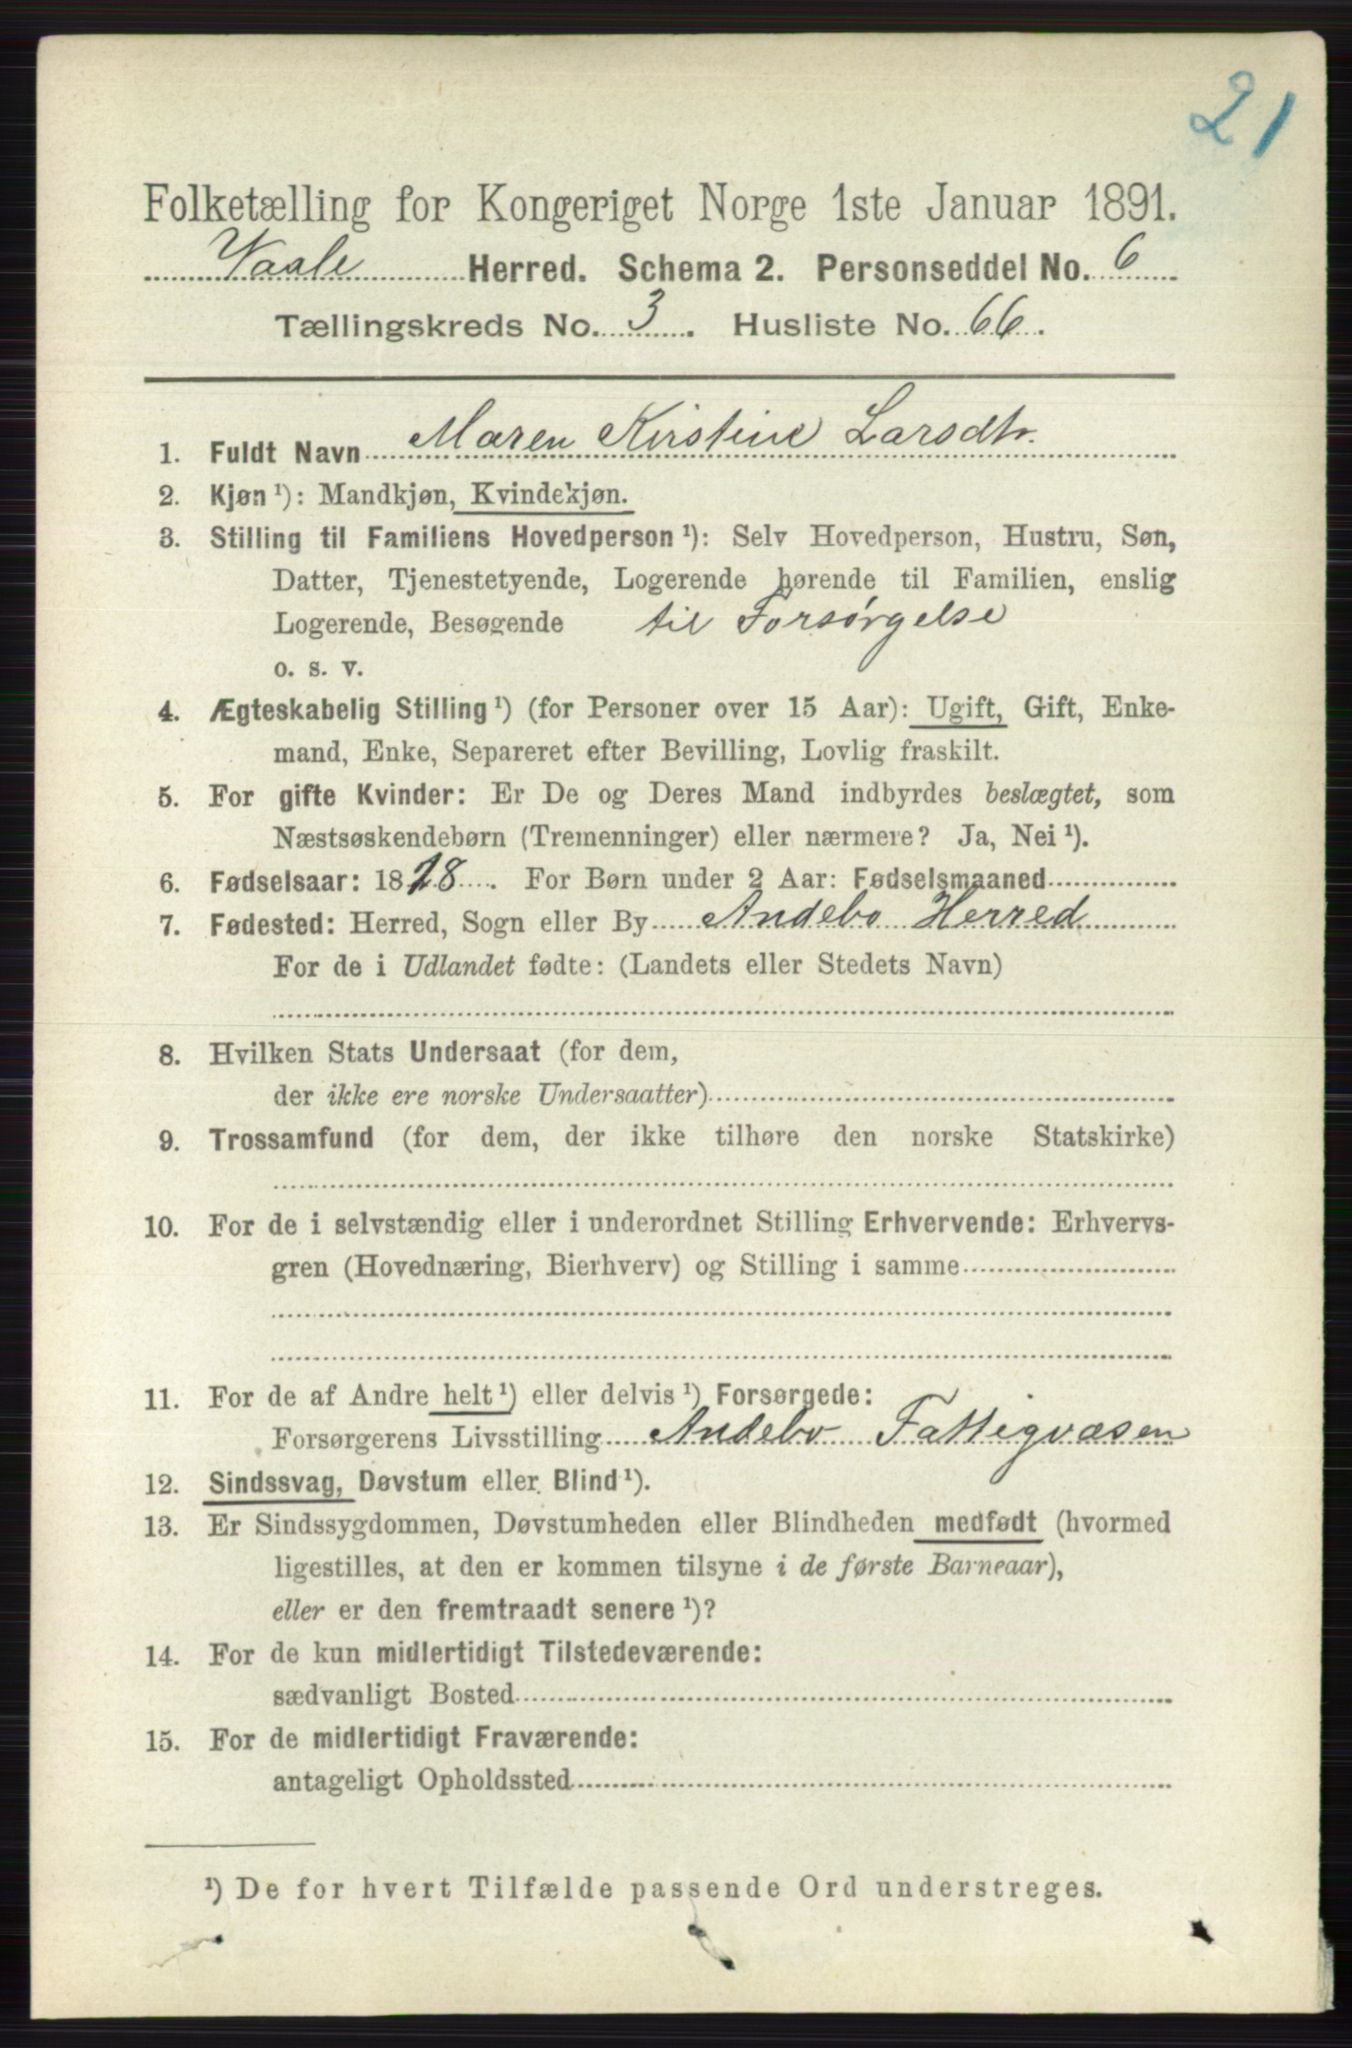 21
Folketælling for Kongeriget Norge 1ste Januar 1891.
Vaale Herred. Schema 2. Personseddel No. 6
Tællingskreds No. 3. Husliste No. 66.
1. Fuldt Navn Maren Kirstine Larsdtr.
2. Kjøn ¹): Mandkjøn, Kvindekjøn.
3. Stilling til Familiens Hovedperson ¹): Selv Hovedperson, Hustru, Søn,
Datter, Tjenestetyende, Logerende hørende til Familien, enslig
Logerende, Besøgende til Forsørgelse
o. s. v.
4. Ægteskabelig Stilling ¹) (for Personer over 15 Aar): Ugift, Gift, Enke-
mand, Enke, Separeret efter Bevilling, Lovlig fraskilt.
5. For gifte Kvinder: Er De og Deres Mand indbyrdes beslægtet, som
Næstsøskendebørn (Tremenninger) eller nærmere? Ja, Nei ¹).
6. Fødselsaar: 1828. For Børn under 2 Aar: Fødselsmaaned
7. Fødested: Herred, Sogn eller By Andebo Herred
For de i Udlandet fødte: (Landets eller Stedets Navn)
8. Hvilken Stats Undersaat (for dem,
der ikke ere norske Undersaatter)
9. Trossamfund (for dem, der ikke tilhøre den norske Statskirke)
10. For de i selvstændig eller i underordnet Stilling Erhvervende: Erhvervs-
gren (Hovednæring, Bierhverv) og Stilling i samme
11. For de af Andre helt ¹) eller delvis ¹) Forsørgede:
Forsørgerens Livsstilling Andebo Fattigvæsen
12. Sindssvag, Døvstum eller Blind ¹).
13. Er Sindssygdommen, Døvstumheden eller Blindheden medfødt (hvormed
ligestilles, at den er kommen tilsyne i de første Barneaar),
eller er den fremtraadt senere ¹)?
14. For de kun midlertidigt Tilstedeværende:
sædvanligt Bosted
15. For de midlertidigt Fraværende:
antageligt Opholdssted
¹) De for hvert Tilfælde passende Ord understreges.